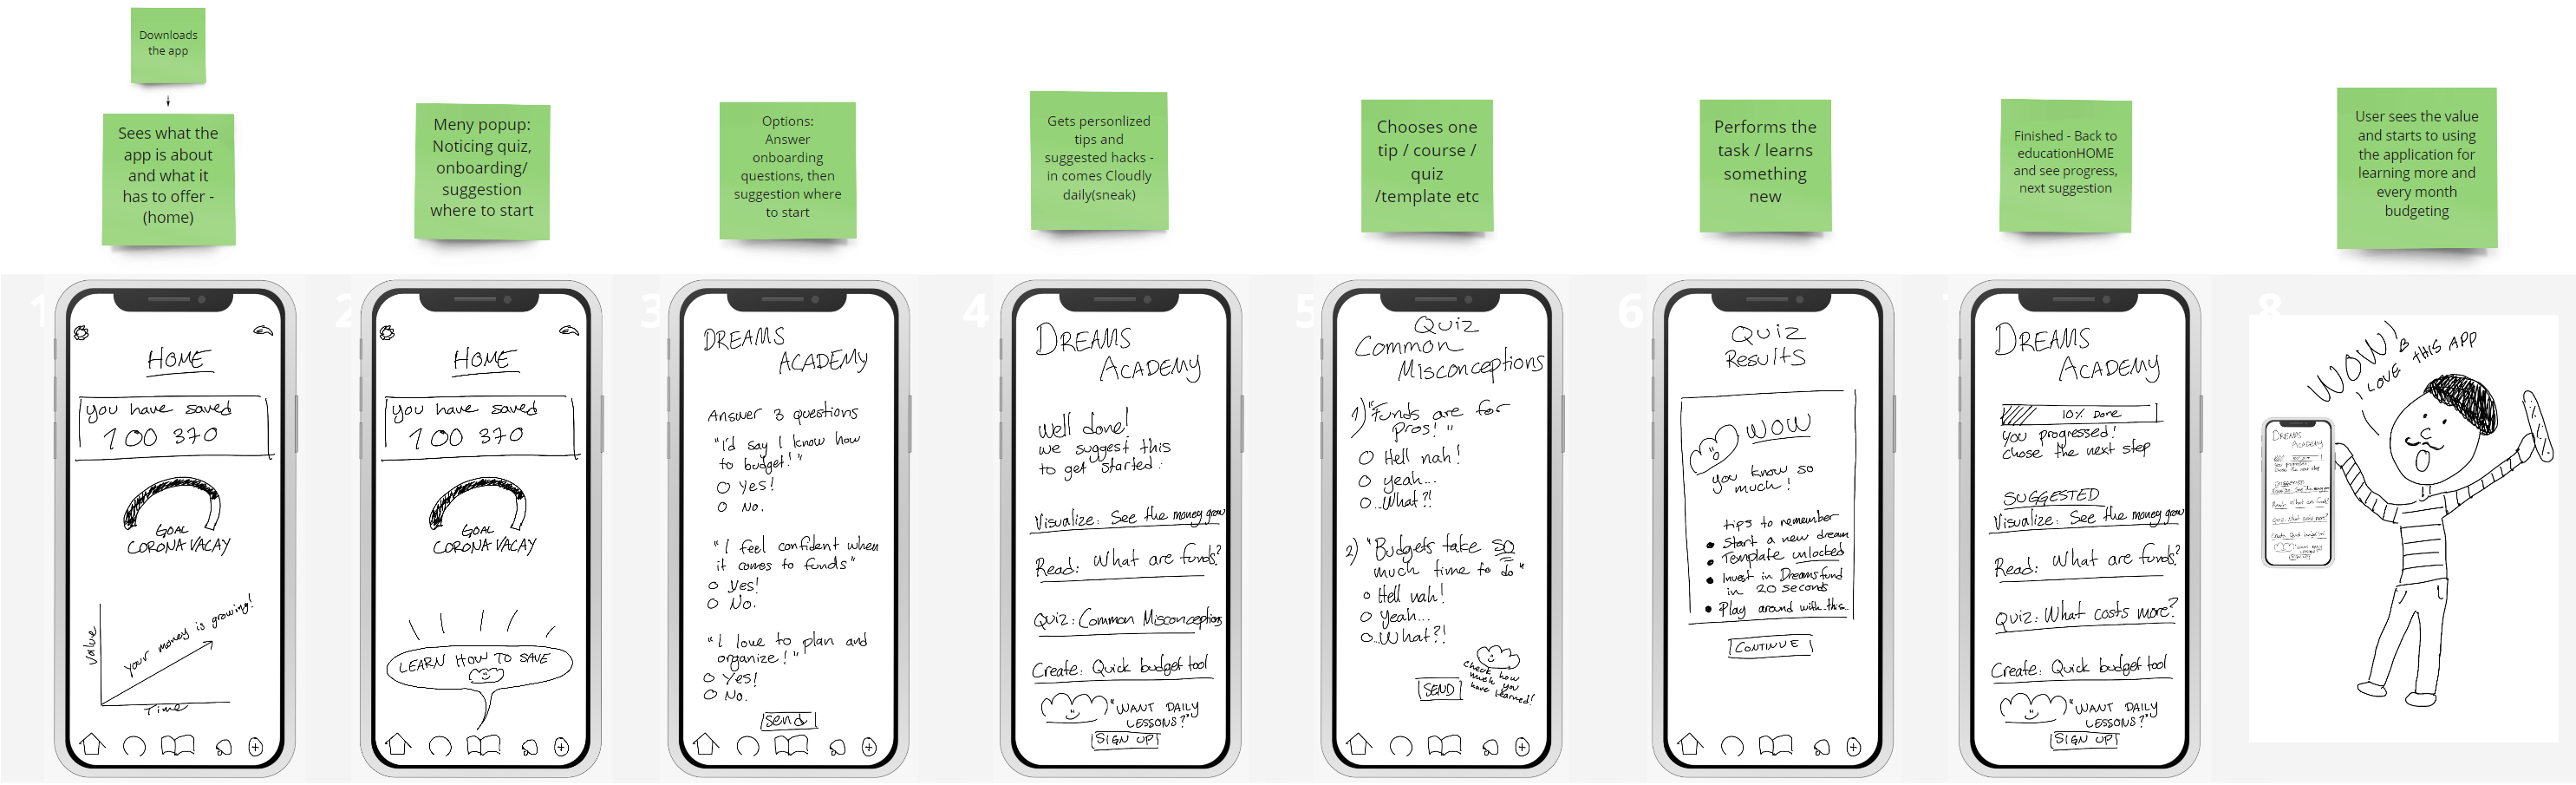 Downloads
the app
Sees what the
app is about
and what it
has to offer -
(home)
Meny popup:
Noticing quiz,
onboarding/
suggestion
where to start
Options:
Answer
onboarding
questions, then
suggestion where
to start
Gets personlized
tips and
suggested hacks -
in comes Cloudly
daily(sneak)
Chooses one
tip / course /
quiz
/template etc
Performs the
task / learns
something
new
Finished - Back to
educationHOME
and see progress,
next suggestion
User sees the value
and starts to using
the application for
learning more and
every month
budgeting
1
HOME
you have saved
100 370
GOAL
CORONA VACAY
Value
your money is growing!
Time
2
HOME
you have saved
100 370
GOAL
CORONA VACAY
LEARN HOW TO SAVE
3
DREAMS
ACADEMY
Answer 3 questions
"I'd say I know how
to budget!"
Yes!
No.
"I feel confident when
it comes to funds"
Yes!
No.
"I love to plan and
organize!"
Yes!
No.
Send
4
DREAMS
ACADEMY
well done!
we suggest this
to get started:
Visualize: See the money grow
Read: What are funds?
Quiz: Common Misconceptions
Create: Quick budget tool
"WANT DAILY
LESSONS?"
SIGN UP!
5
Quiz
Common
Misconceptions
1) "Funds are for
pros!"
Hell nah!
yeah...
..What?!
2) "Budgets take so
much time to do"
Hell nah!
Yeah...
..What?!
check how
much you
have learned!
SEND
6
Quiz
Results
WOW
you know so
much!
tips to remember
Start a new dream
Template unlocked
Invest in Dreams fund
in 20 seconds
Play around with this
CONTINUE
7
DREAMS
ACADEMY
10% Done
You progressed!
chose the next step
SUGGESTED
Visualize: See the money grow
Read: What are funds?
Quiz: What costs more?
Create: Quick budget tool
"WANT DAILY
LESSONS?"
SIGN UP!
8
WOW!
I LOVE THIS APP
DREAMS
ACADEMY